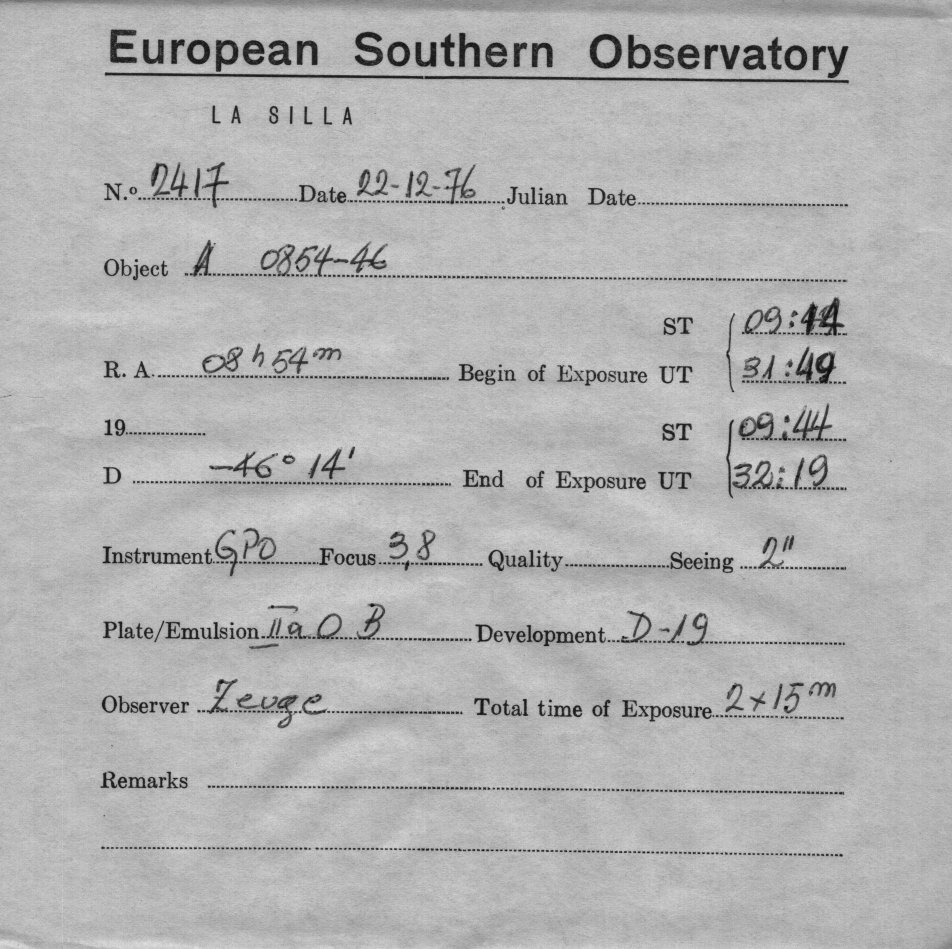 European Southern Observatory
LA SILLA
N.º 2417 Date 22-12-76 Julian Date
Object A 0854-46
ST 09:14
R. A. 08h 54m Begin of Exposure UT 31:49
19 ST 09:44
D -46° 14' End of Exposure UT 32:19
Instrument GPO Focus 3,8 Quality Seeing 2"
Plate/Emulsion IIa O B Development D-19
Observer Zeuge Total time of Exposure 2x15m
Remarks